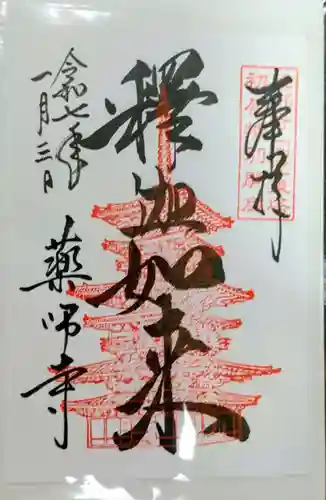 奉拝
釋迦如来
令和七年
一月三日
藥師寺